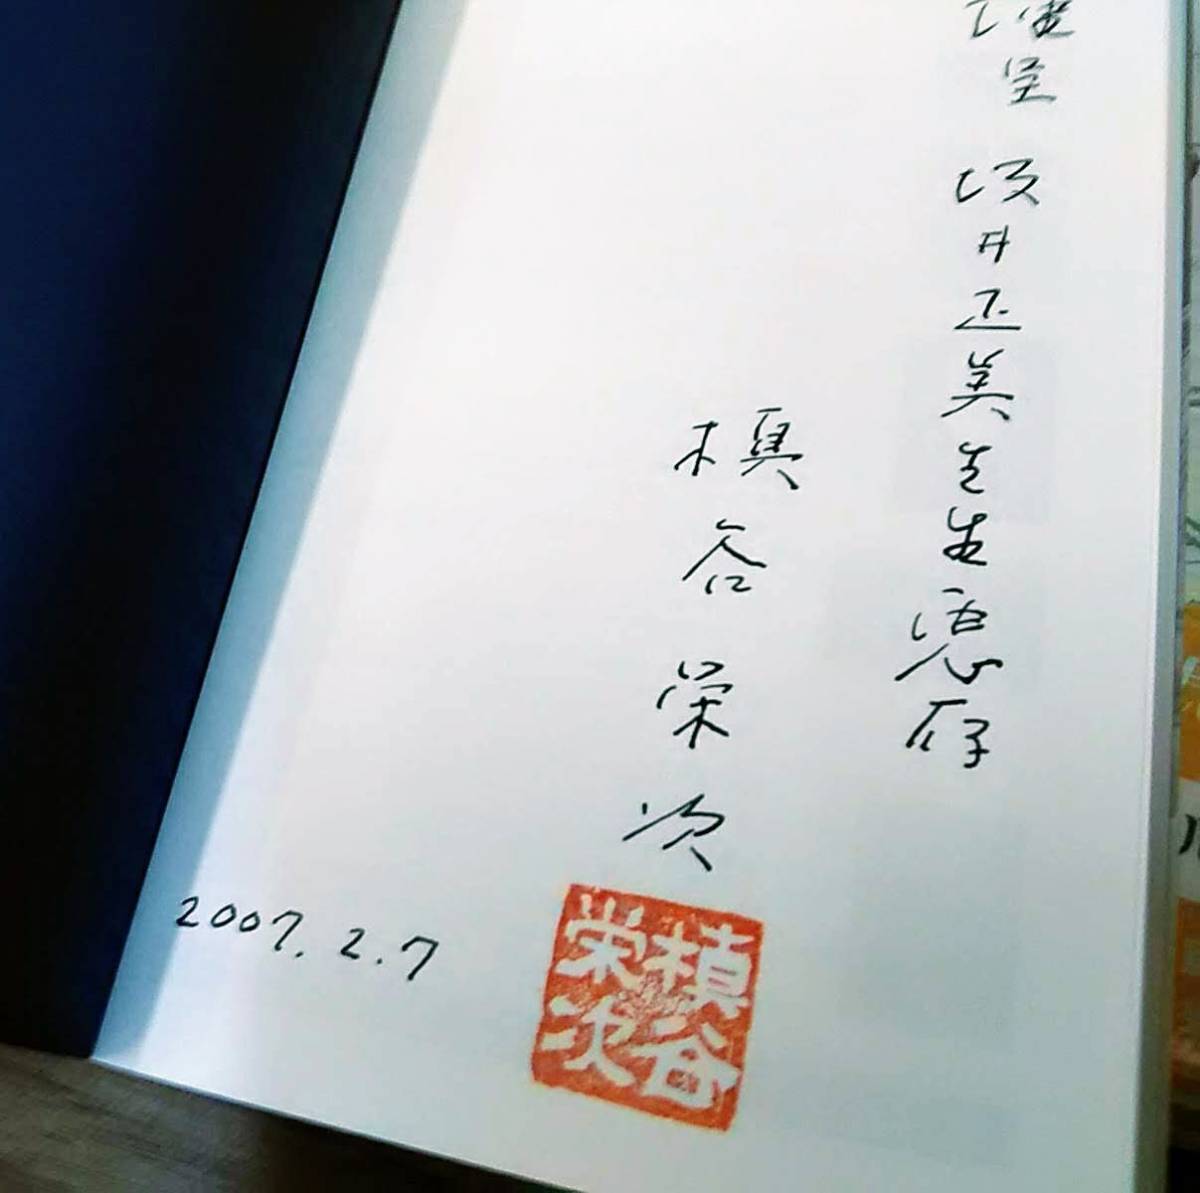 坂井正美先生恵存
槙谷栄次
2007.2.7
槙谷
栄次